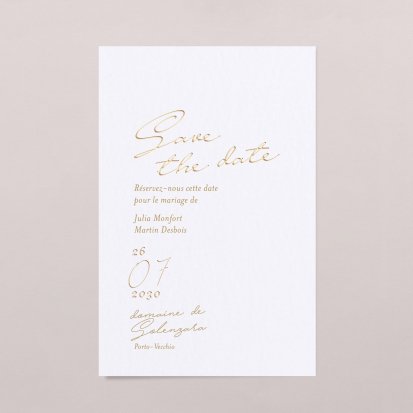 Save
the date
Réservez-nous cette date
pour le mariage de
Julia Monfort
Martin Desbois
26
07
2030
domaine de
Solenzara
Porto-Vecchio